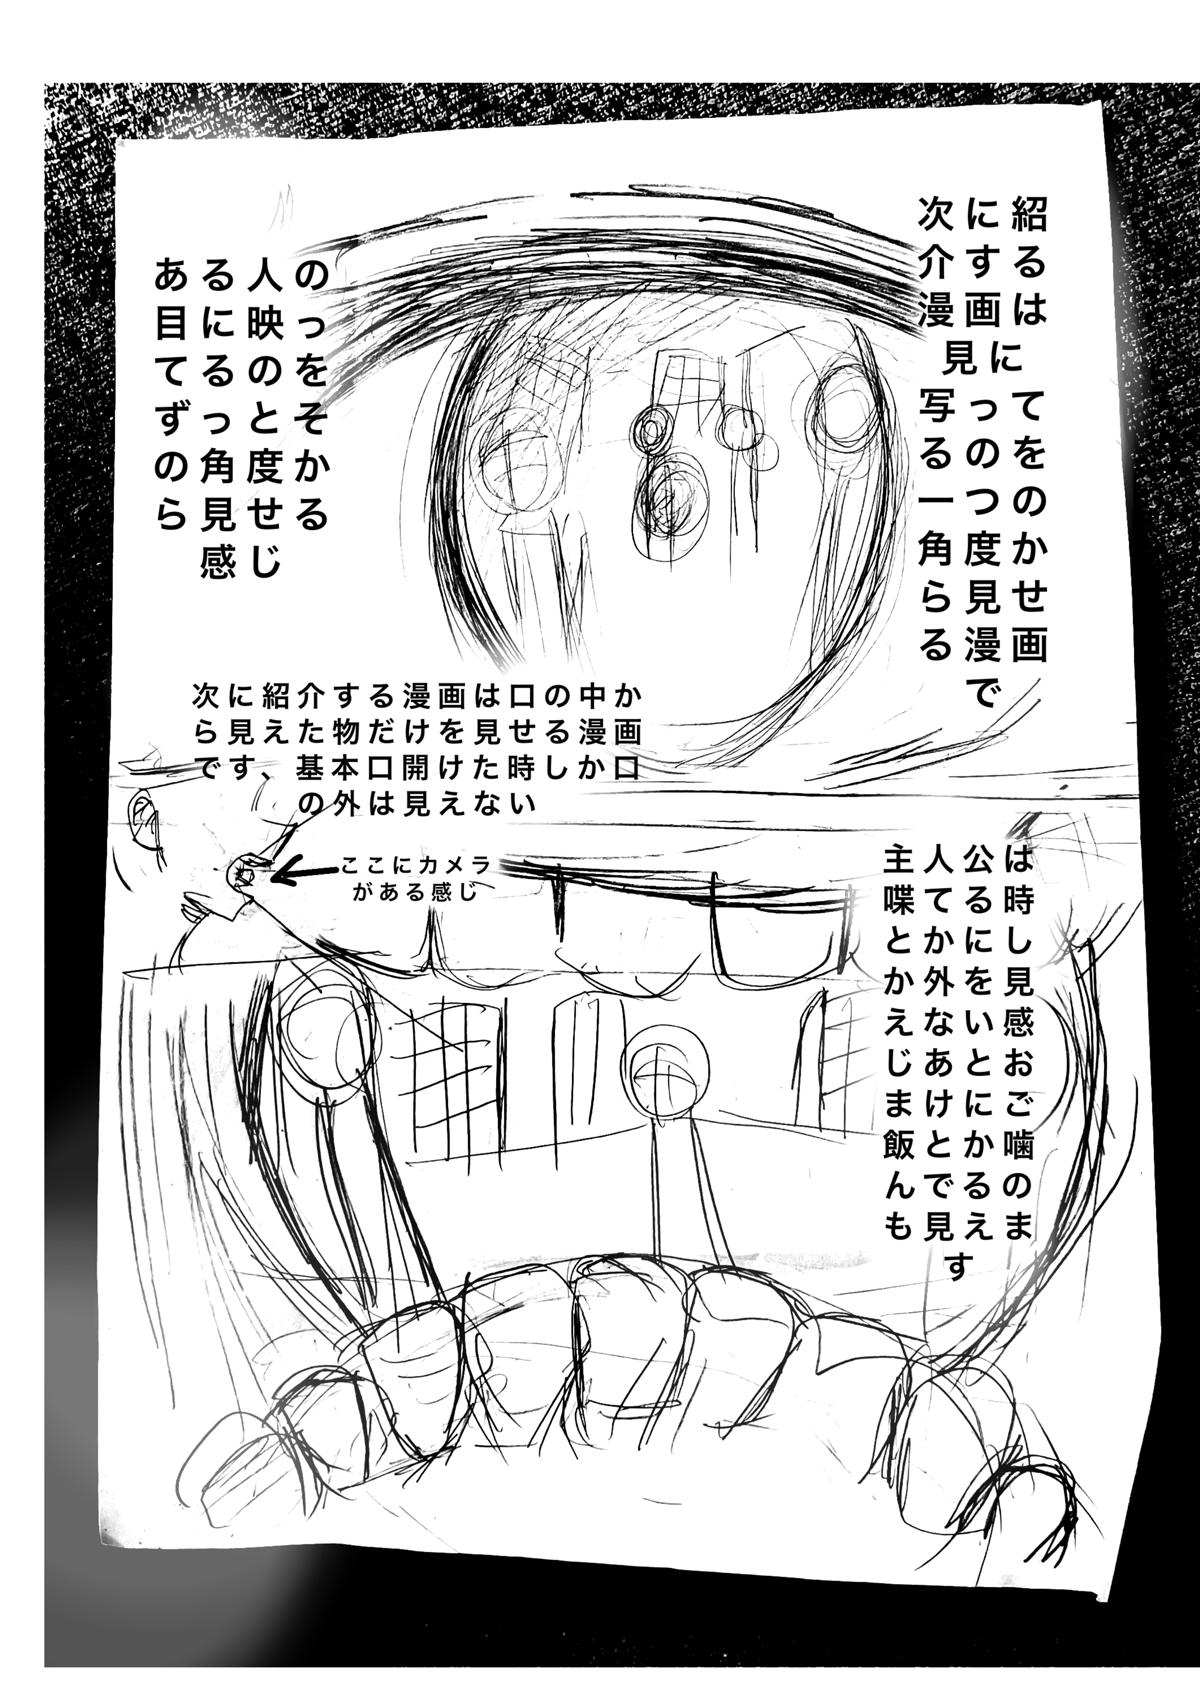 次に紹
介する
漫画は
見に
写って
るのを
一つの
角度か
ら見せ
る漫画
で
ある人の
目に映っ
てるのを
ずっとそ
の角度か
ら見せる
感じ
次に紹介する漫画は口の中か
ら見えた物だけを見せる漫画
です、基本口開けた時しか口
の外は見えない
ここにカメラ
がある感じ
主人公は
喋てる時
とかにし
か外を見
えない感
じあとお
まけにご
飯とか噛
んでるの
も見えま
す